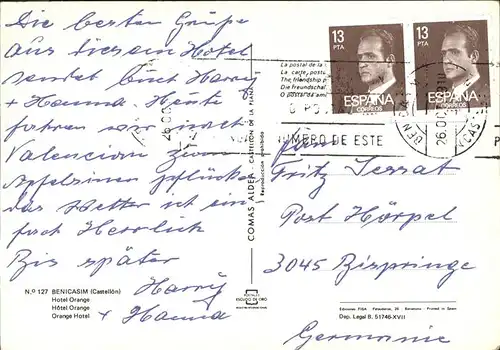 Die besten Grüße
aus diesem Hotel
sendet Euch Harry
+ Hanna. Heute
fahren wir nach
Valencia zum
Apfelsinen pflücken
das Wetter ist ein
fach Herrlich
Bis später
Harry
+ Hanna
N.º 127 BENICASIM (Castellón)
Hotel Orange
Hôtel Orange
Orange Hotel
COMAS ALDEA CASTELLON DE LA PLANA
Reproducción prohibida
POSTALES
ESCUDO DE ORO
13
PTA
ESPAÑA
CORREOS
13
PTA
ESPAÑA
CORREOS
La postal de la
La carte posta
The friendship p
Die freundschaf
NUMERO DE ESTE
26 OC
BENICA
26.OC
(CASTE
Fritz
Post Hörpel
3045 Bispringe
Germanie
Ediciones FISA
Barcelona - Printed in Spain
Dep. Legal B. 51746-XVII